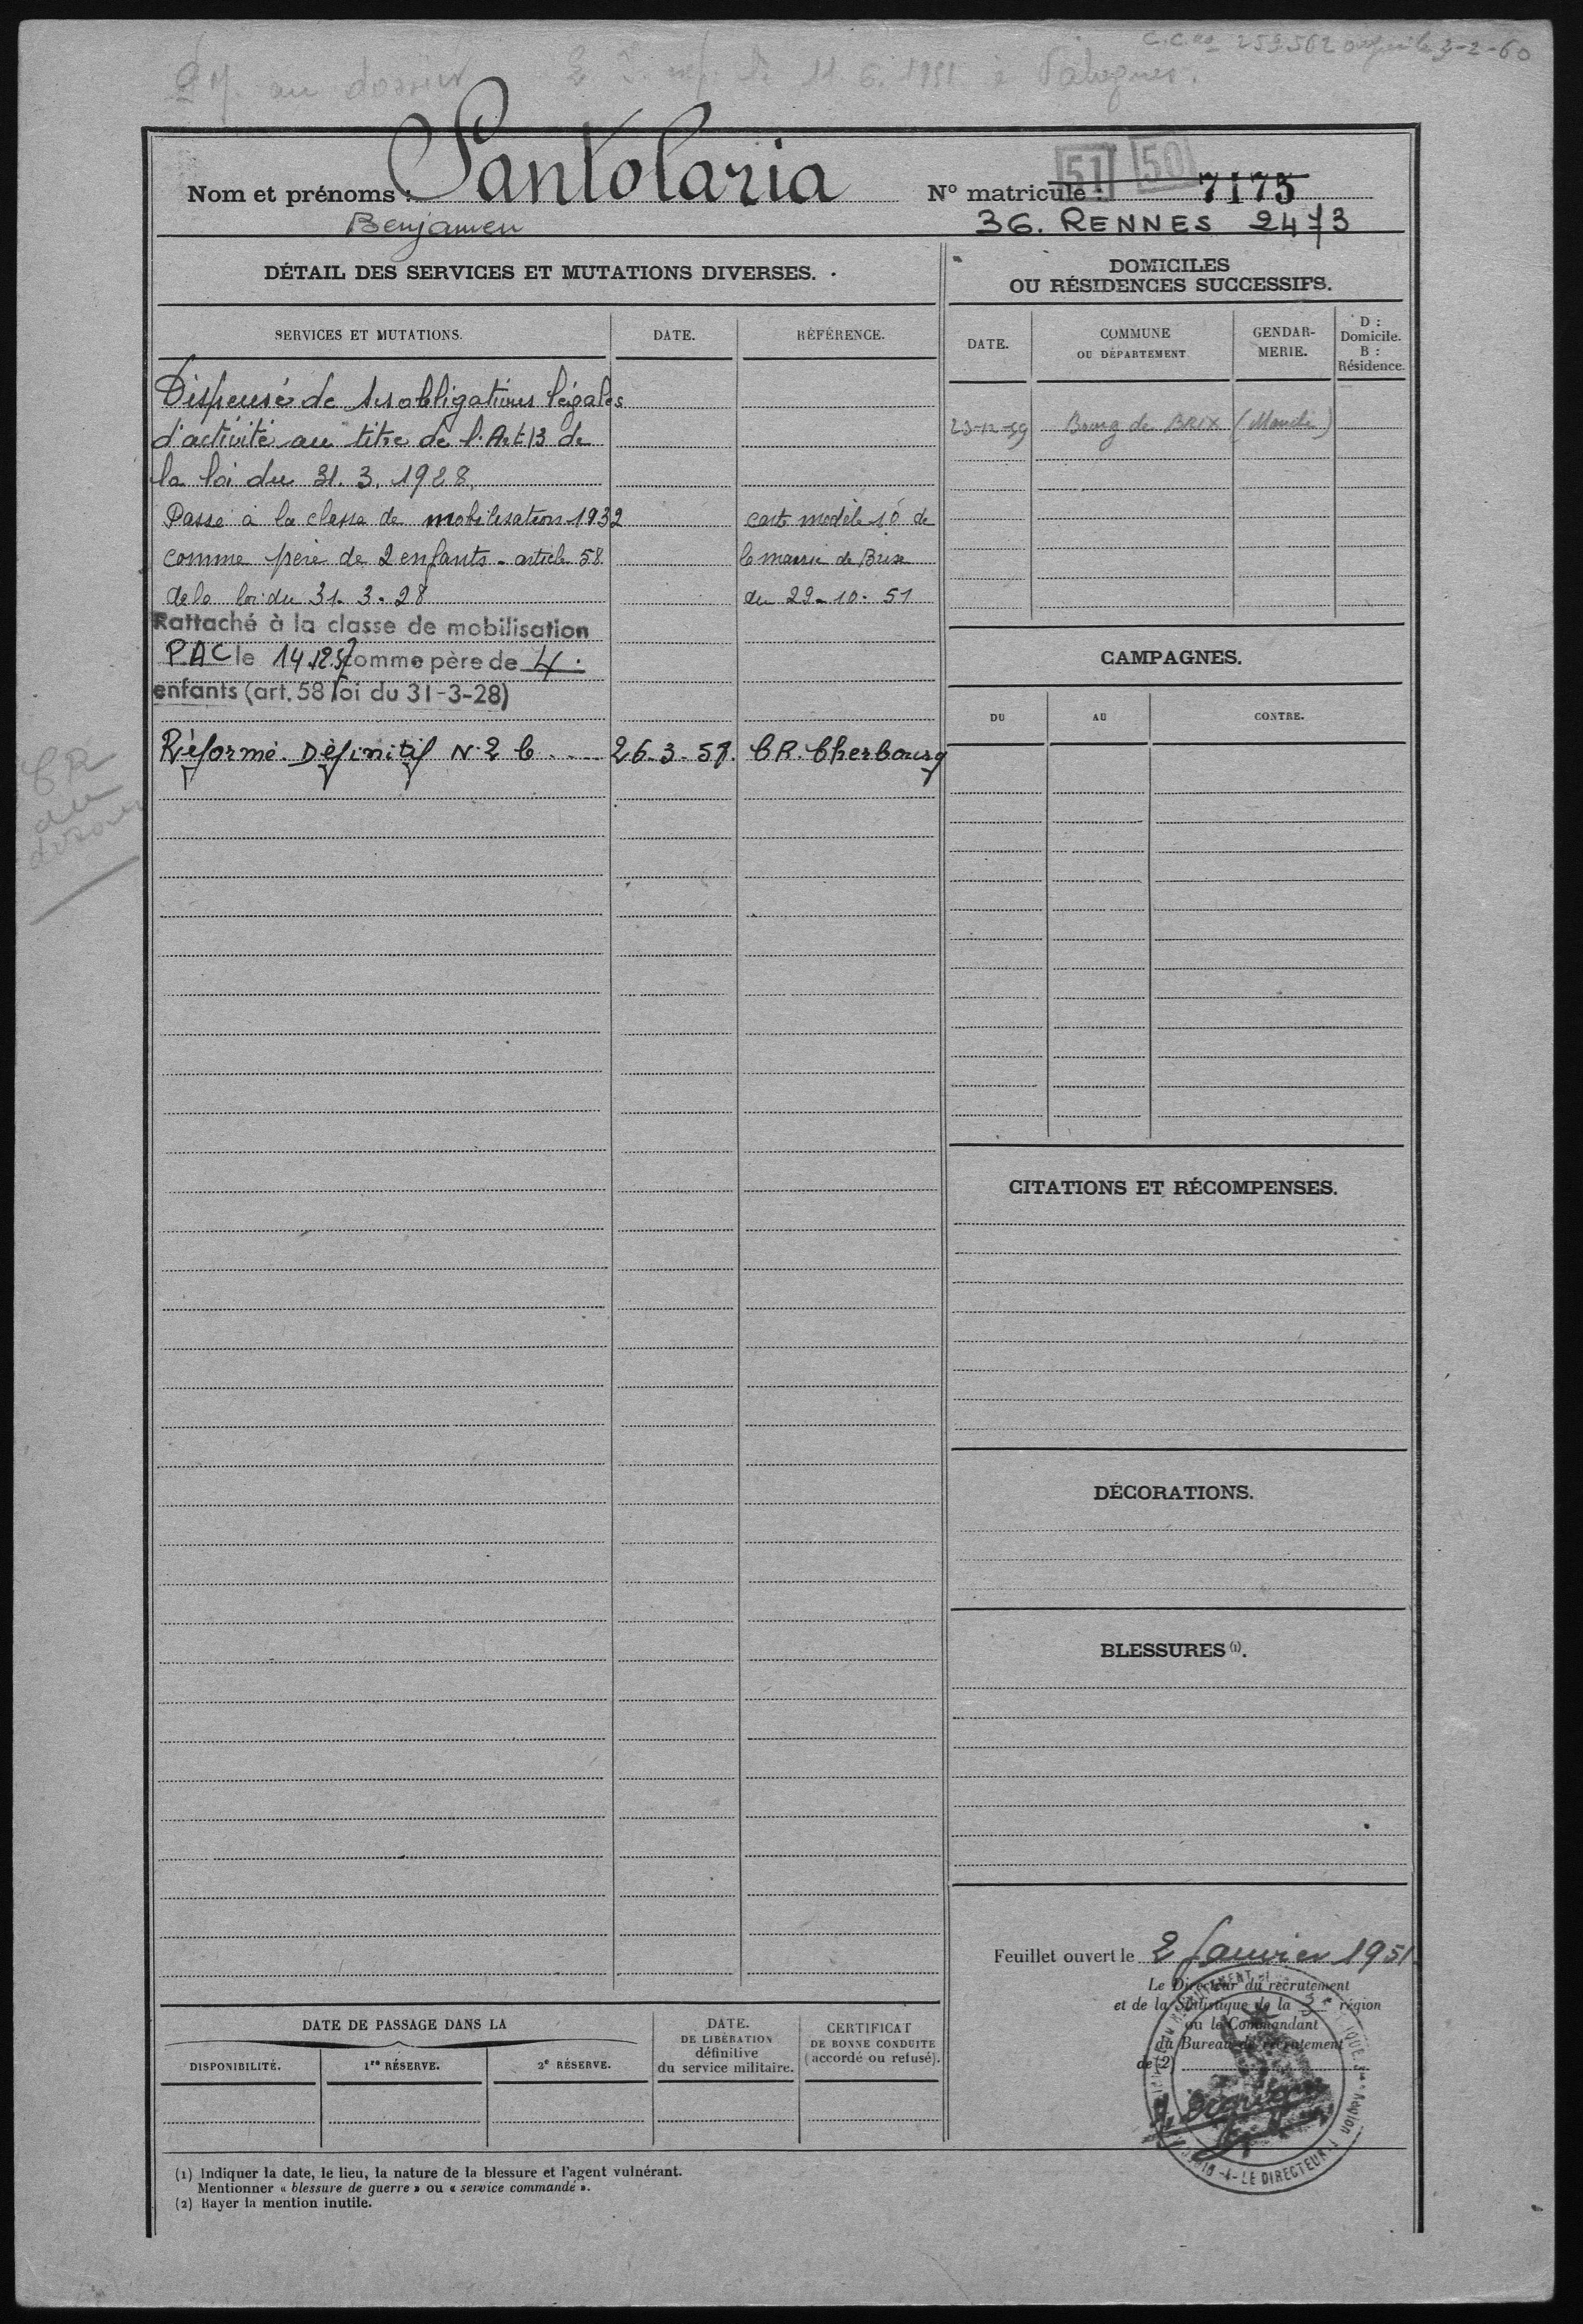 C.C. no 253.562 3-2-60
au dossier 11.6.1951 à Valognes.
51 50
Nom et prénoms : Santolaria
N° matricule : 7175
Benjamen
36. RENNES 2473
DÉTAIL DES SERVICES ET MUTATIONS DIVERSES.
SERVICES ET MUTATIONS. DATE. RÉFÉRENCE.
Dispensé de ses obligations légales
d'activité au titre de l'Art 13 de
la loi du 31.3.1928.
Passé à la classe de mobilisation 1932 carte modèle 10 de
comme père de 2 enfants - article 58 la mairie de Brix
de la loi du 31-3-28 du 22-10-51
Rattaché à la classe de mobilisation
PAC le 14.12.57 comme père de 4
enfants (art. 58 loi du 31-3-28)
Réformé Définitif N°2 26-3-58. CR. Cherbourg
CR
au
dossier
DOMICILES
OU RÉSIDENCES SUCCESSIFS.
DATE. COMMUNE OU DÉPARTEMENT. GENDAR-MERIE. D : Domicile. B : Résidence.
23-12-59 Bourg de BRIX (Manche)
CAMPAGNES.
DU AU CONTRE.
CITATIONS ET RÉCOMPENSES.
DÉCORATIONS.
BLESSURES (1).
Feuillet ouvert le 2 Janvier 1951
Le Directeur du recrutement
et de la Statistique de la 3e région
ou le Commandant
du Bureau de recrutement
de (2)
LE DIRECTEUR
DATE DE PASSAGE DANS LA
DISPONIBILITÉ. 1re RÉSERVE. 2e RÉSERVE.
DATE.
DE LIBÉRATION
définitive
du service militaire.
CERTIFICAT
DE BONNE CONDUITE
(accordé ou refusé).
(1) Indiquer la date, le lieu, la nature de la blessure et l'agent vulnérant.
Mentionner « blessure de guerre » ou « service commandé ».
(2) Rayer la mention inutile.